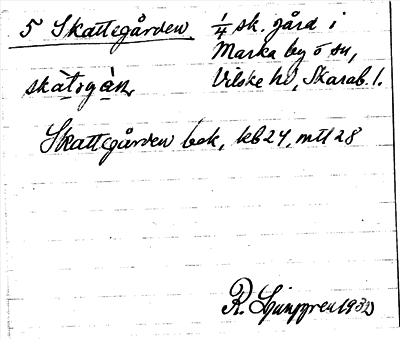 5 Skattegården 1/4 sk. gård i
Marka by o sn,
skàtsgàn, Vilske hd, Skarab. l.
Skattegården bek, kb 24, mtl 28
R. Ljunggren 1932